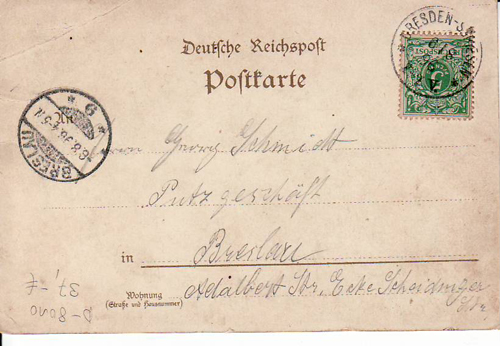 Deutsche Reichspost
Postkarte
DRESDEN-
BRESLAU
An
Herrn Georg Schmidt
Putzgeschäft
in Breslau
Wohnung
(Straße und Hausnummer)
Adalbert Str, Ecke Scheidniger
Str.
37,-€
D-8010